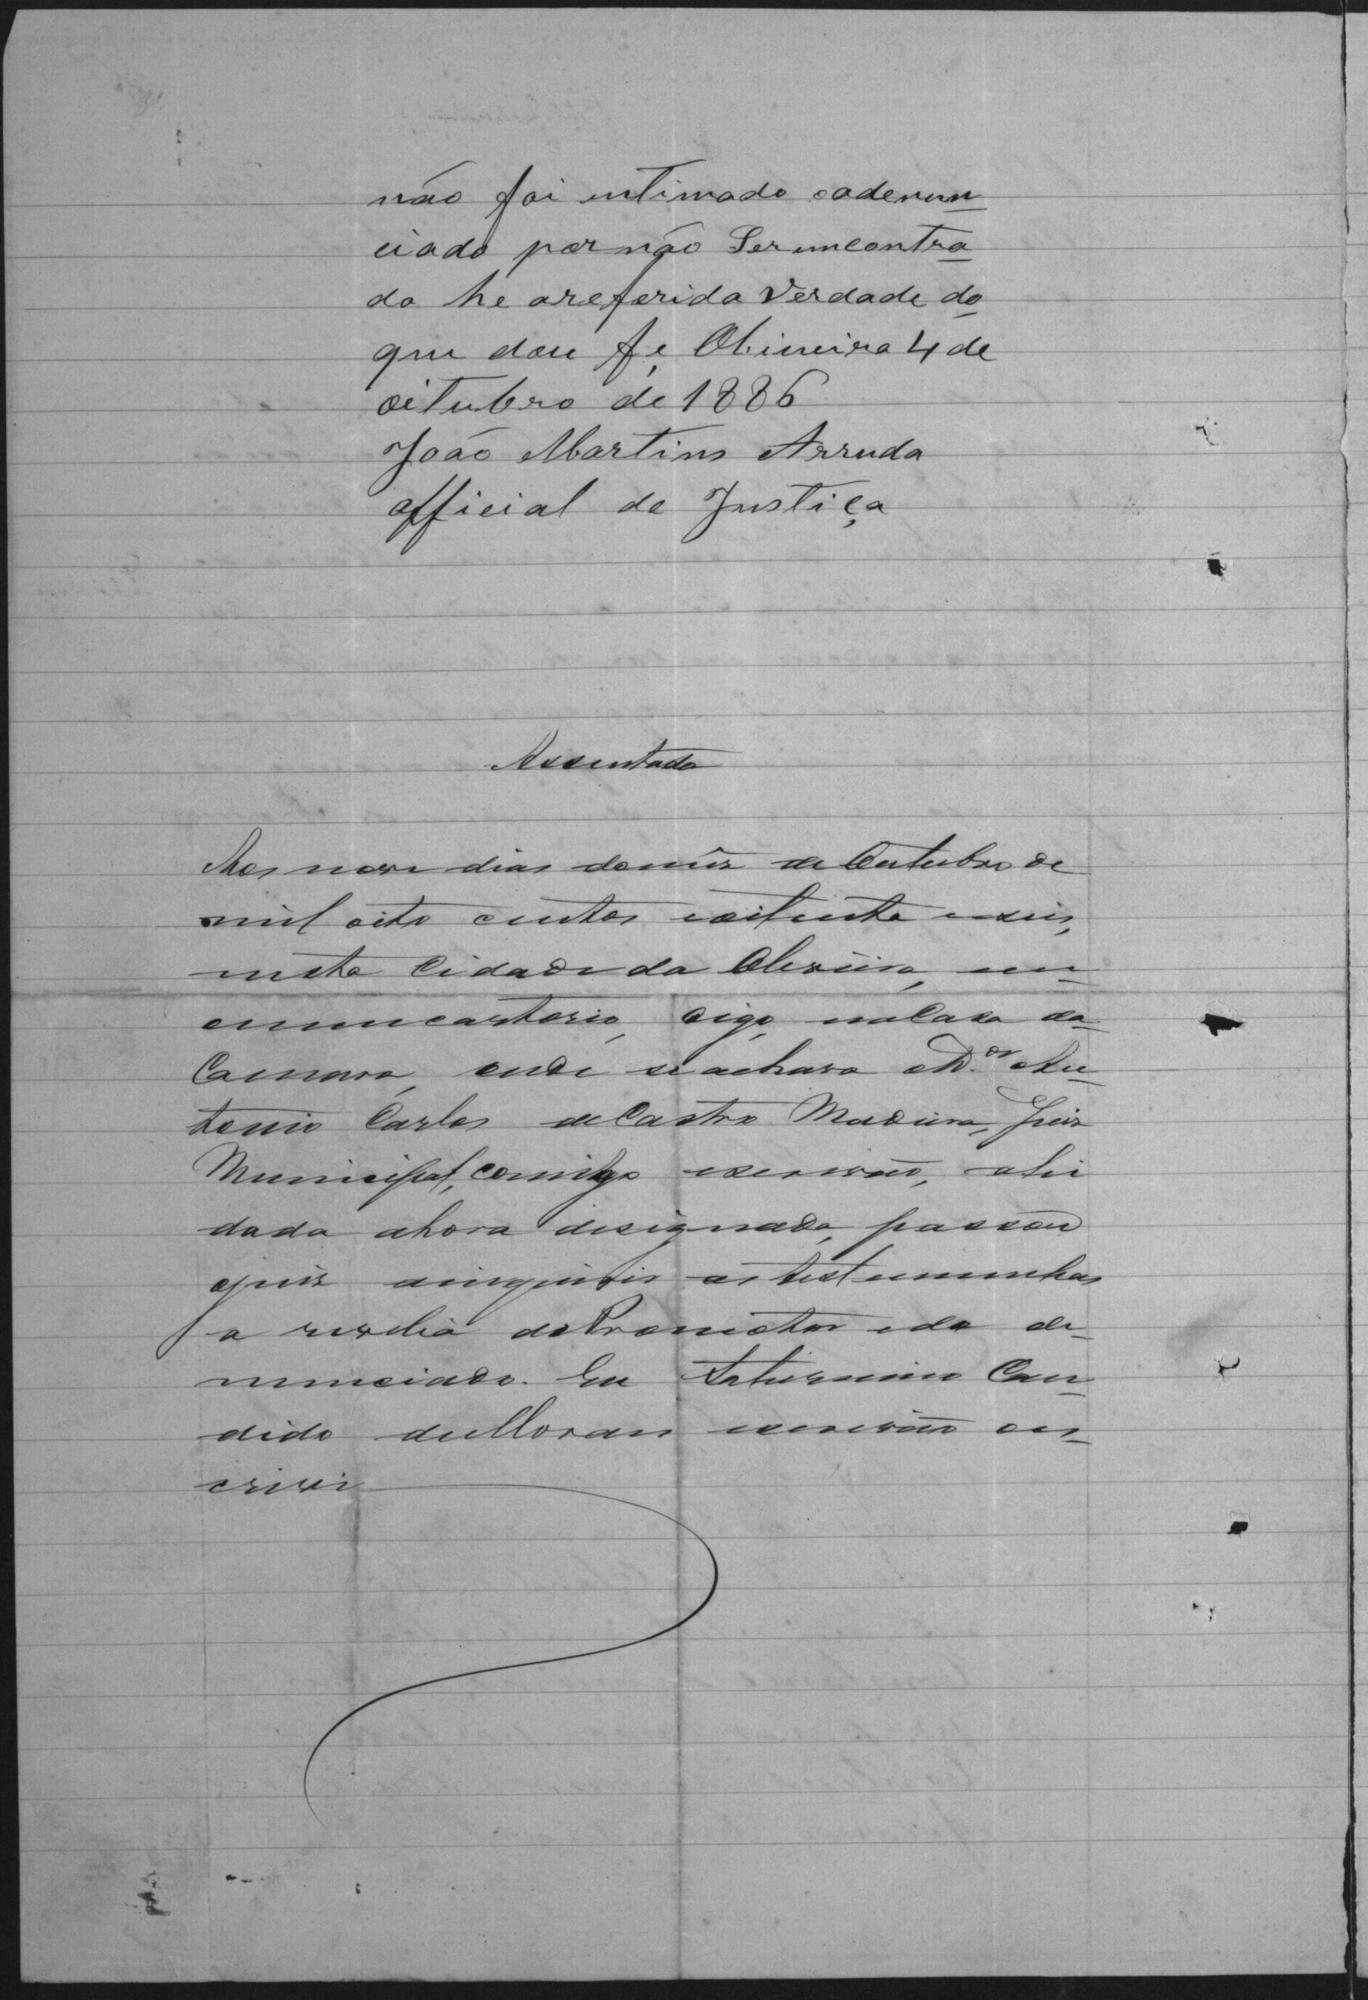 não foi intimado o adenun
ciado por não Ser imcontra
do he areferida Verdade do
que dou fe, Olineira 4 de
oitubro de 1886
João Martins Arruda
official de Justiça
Assentada
Aos nove dias domês de Outubro de
mil oito centos e oitenta e seis,
nesta Cidade da Oliveira, em
emmeucartorio, digo, na Casa da
Camara, onde se achava o Dr. An
tonio Carlos de Castro Madeira, Juiz
Municipal, comigo escrivão, ahi
dada ahora designada, passou
ojuiz a inquirir as testemunhas
a revelia do Promotor e do de
nunciado. Eu Saturnino Can
dido de Moraes escrivão es
crivi